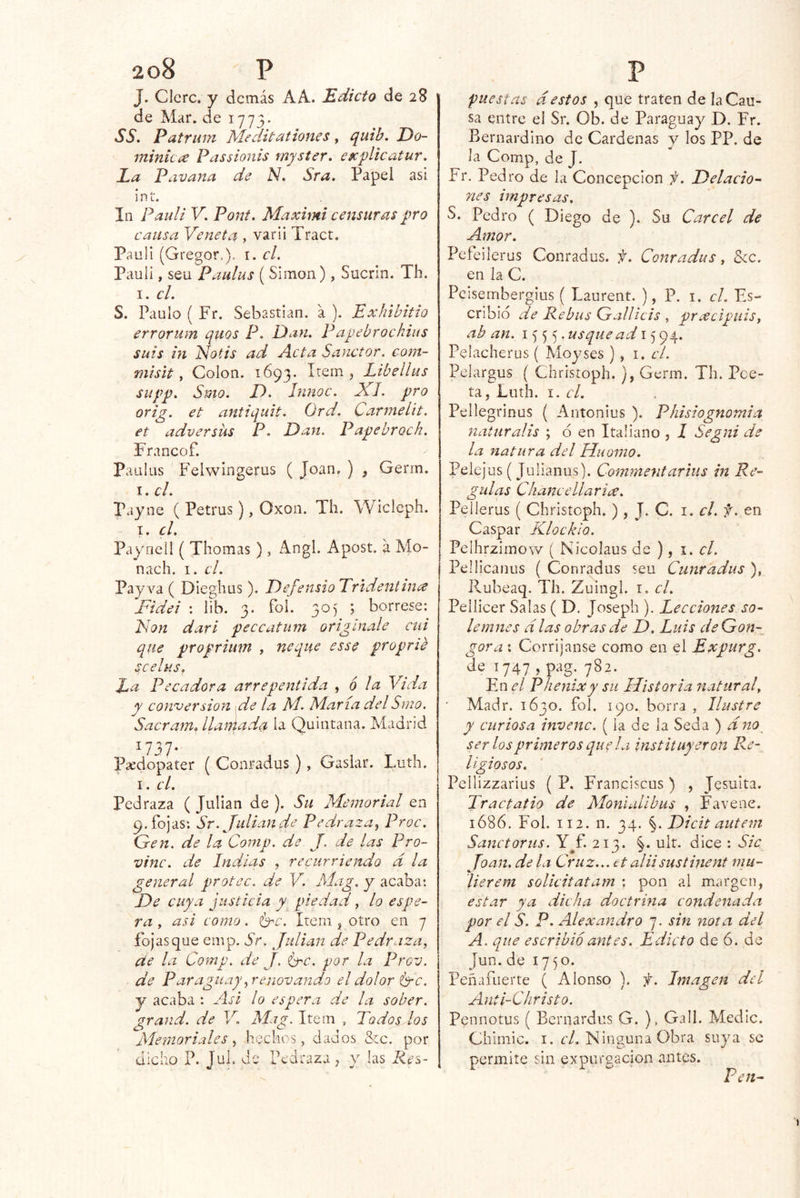 208 P
J. Clerc. y demás AA. Edicto de 28
de Mar. de 1773.
SS. Patrum Meditationes, quib. Do-
minicæ Passionis myster. explicatur.
La Pavana de N. Sra. Papel asi
int.
In Pauli V. Pont. Maximi censuras pro
causa Veneta, varii Tract.
Pauli (Gregor.). 1. cl.
Pauli, seu Paulus (Simon), Sucrin. Th.
1. cl.
S. Paulo (Fr. Sebastian. à). Exhibitio
errorum quos P. Dan. Papebrochius
suis in Notis ad Acta Sanctor. com-
misit, Colon. 1693. Item, Libellus
supp. Smo. D. Innoc. XI. pro
orig. et antiquit. Ord. Carmelit.
et adversùs P. Dan. Papebroch.
Francof.
Paulus Felwingerus (Joan.), Germ.
1. cl.
Payne (Petrus), Oxon. Th. Wicleph.
1. cl.
Paynell (Thomas), Angl. Apost. à Mo-
nach. 1. cl.
Payva (Dieghus). Defensio Tridentinæ
Fidei : lib. 3. fol. 305 ; borrese:
Non dari peccatum originale cui
que proprium, neque esse propriè
scelus.
La Pecadora arrepentida, ó la Vida
y conversion de la M. María del Smo.
Sacram. llamada la Quintana. Madrid
1737.
Pædopater (Conradus), Gaslar. Luth.
1. cl.
Pedraza (Julian de). Su Memorial en
9. fojas: Sr. Julian de Pedraza, Proc.
Gen. de la Comp. de J. de las Pro-
vinc. de Indias, recurriendo á la
general protec. de V. Mag. y acaba:
De cuya justicia y piedad, lo espe-
ra, asi como. &c. Item, otro en 7
fojas que emp. Sr. Julian de Pedraza,
de la Comp. de J. &c. por la Prov.
de Paraguay, renovando el dolor &c.
y acaba : Asi lo espera de la sober.
grand. de V. Mag. Item, Todos los
Memoriales, hechos, dados &c. por
dicho P. Jul. de Pedraza, y las Res-
P
puestas á estos, que traten de la Cau-
sa entre el Sr. Ob. de Paraguay D. Fr.
Bernardino de Cardenas y los PP. de
la Comp, de J.
Fr. Pedro de la Concepcion ℣. Delacio-
nes impresas.
S. Pedro (Diego de). Su Carcel de
Amor.
Pefeilerus Conradus. ℣. Conradus, &c.
en la C.
Peisembergius (Laurent.), P. 1. cl. Es-
cribió de Rebus Gallicis, præcipuis,
ab an. 1555. usque ad 1594.
Pelacherus (Moyses), 1. cl.
Pelargus (Christoph.), Germ. Th. Poe-
ta, Luth. 1. cl.
Pellegrinus (Antonius). Phisiognomia
naturalis ; ó en Italiano, I Segni de
la natura del Huomo.
Pelejus (Julianus). Commentarius in Re-
gulas Chancellariæ.
Pellerus (Christoph.), J. C. 1. cl. ℣. en
Caspar Klockio.
Pelhrzimow (Nicolaus de), 1. cl.
Pellicanus (Conradus seu Cunradus),
Rubeaq. Th. Zuingl. 1. cl.
Pellicer Salas (D. Joseph). Lecciones so-
lemnes á las obras de D. Luis de Gon-
gora : Corrijanse como en el Expurg.
de 1747, pag. 782.
En el Phenix y su Historia natural,
Madr. 1630. fol. 190. borra, Ilustre
y curiosa invenc. (la de la Seda) á no
ser los primeros que la instituyeron Re-
ligiosos.
Pellizzarius (P. Franciscus), Jesuita.
Tractatio de Monialibus, Favene.
1686. Fol. 112. n. 34. §. Dicit autem
Sanctorus. Y f. 213. §. ult. dice : Sic
Joan. de la Cruz... et alii sustinent mu-
lierem solicitatam : pon al margen,
estar ya dicha doctrina condenada
por el S. P. Alexandro 7. sin nota del
A. que escribió antes. Edicto de 6. de
Jun. de 1750.
Peñafuerte (Alonso). ℣. Imagen del
Anti-Christo.
Pennotus (Bernardus G.), Gall. Medic.
Chimic. 1. cl. Ninguna Obra suya se
permite sin expurgacion antes.
Pen-